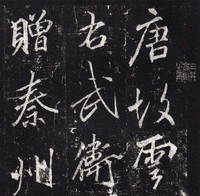 唐故雲
右武衛
贈秦州